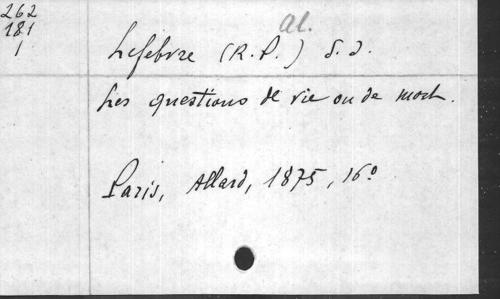 262
181
1
al.
Lefebvre (R.P.) S.J.
Les questions de vie ou de mort.
Paris, Allard, 1875, 16º